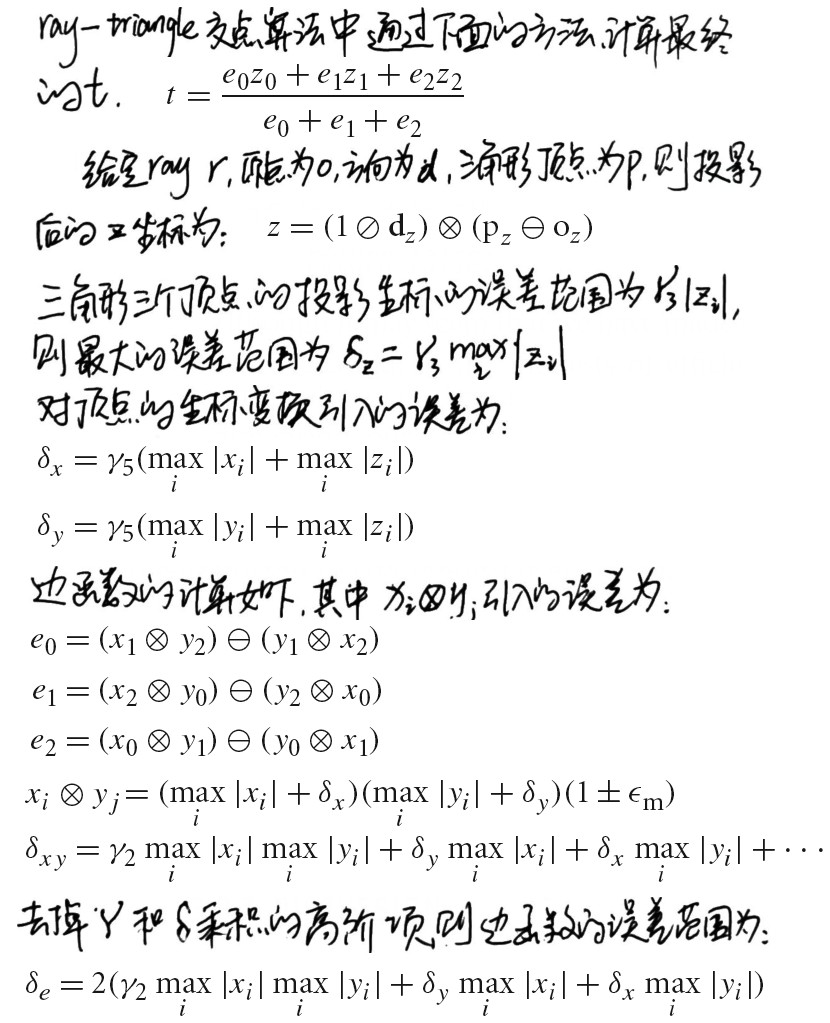 ray-triangle交点算法中通过下面的方法计算最终
的t. t = (e₀z₀ + e₁z₁ + e₂z₂) / (e₀ + e₁ + e₂)
给定ray r,原点为o,方向为d,三角形顶点为p,则投影
后的z坐标为: z = (1 ⊘ d_z) ⊗ (p_z ⊖ o_z)
三角形三个顶点的投影坐标的误差范围为 γ₃|z_i|,
则最大的误差范围为 δ_z = γ₃ max_i |z_i|
对顶点的坐标变换引入的误差为:
δ_x = γ₅(max_i |x_i| + max_i |z_i|)
δ_y = γ₅(max_i |y_i| + max_i |z_i|)
边函数的计算如下,其中 x_i⊗y_j引入的误差为:
e₀ = (x₁ ⊗ y₂) ⊖ (y₁ ⊗ x₂)
e₁ = (x₂ ⊗ y₀) ⊖ (y₂ ⊗ x₀)
e₂ = (x₀ ⊗ y₁) ⊖ (y₀ ⊗ x₁)
x_i ⊗ y_j = (max_i |x_i| + δ_x)(max_i |y_i| + δ_y)(1 ± ϵ_m)
δ_xy = γ₂ max_i |x_i| max_i |y_i| + δ_y max_i |x_i| + δ_x max_i |y_i| + ⋯
去掉γ和δ乘积的高阶项,则边函数的误差范围为:
δ_e = 2(γ₂ max_i |x_i| max_i |y_i| + δ_y max_i |x_i| + δ_x max_i |y_i|)